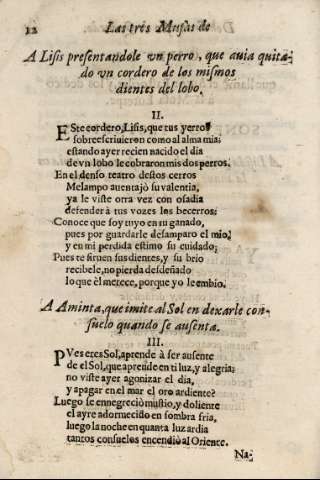 12 Las tres Musas de
A Lisis presentandole vn perro, que auia quita-
do vn cordero de los mismos
dientes del lobo.
II.
ESte cordero, Lisis, que tus yerros
sobreescriuieron como al alma mia;
estando ayer recien nacido el dia
de vn lobo le cobraron mis dos perros.
En el denso teatro destos cerros
Melampo auentajò su valentia,
ya le viste otra vez con osadia
defender à tus vozes los becerros:
Conoce que soy tuyo en su ganado,
pues por guardarle desamparo el mio,
y en mi perdida estimo su cuidado;
Pues te siruen sus dientes, y su brio
recibele, no pierda desdeñado
lo que èl merece, porque yo le embio.
A Aminta, que imite al Sol en dexarle con-
suelo quando se ausenta.
III.
PVes eres Sol, aprende à ser ausente
de el Sol, que aprende en ti luz, y alegria;
no viste ayer agonizar el dia,
y apagar en el mar el oro ardiente?
Luego se ennegreciò mustio, y doliente
el ayre adormecido en sombra fria,
luego la noche en quanta luz ardia
tantos consuelos encendiò al Oriente.
Na-